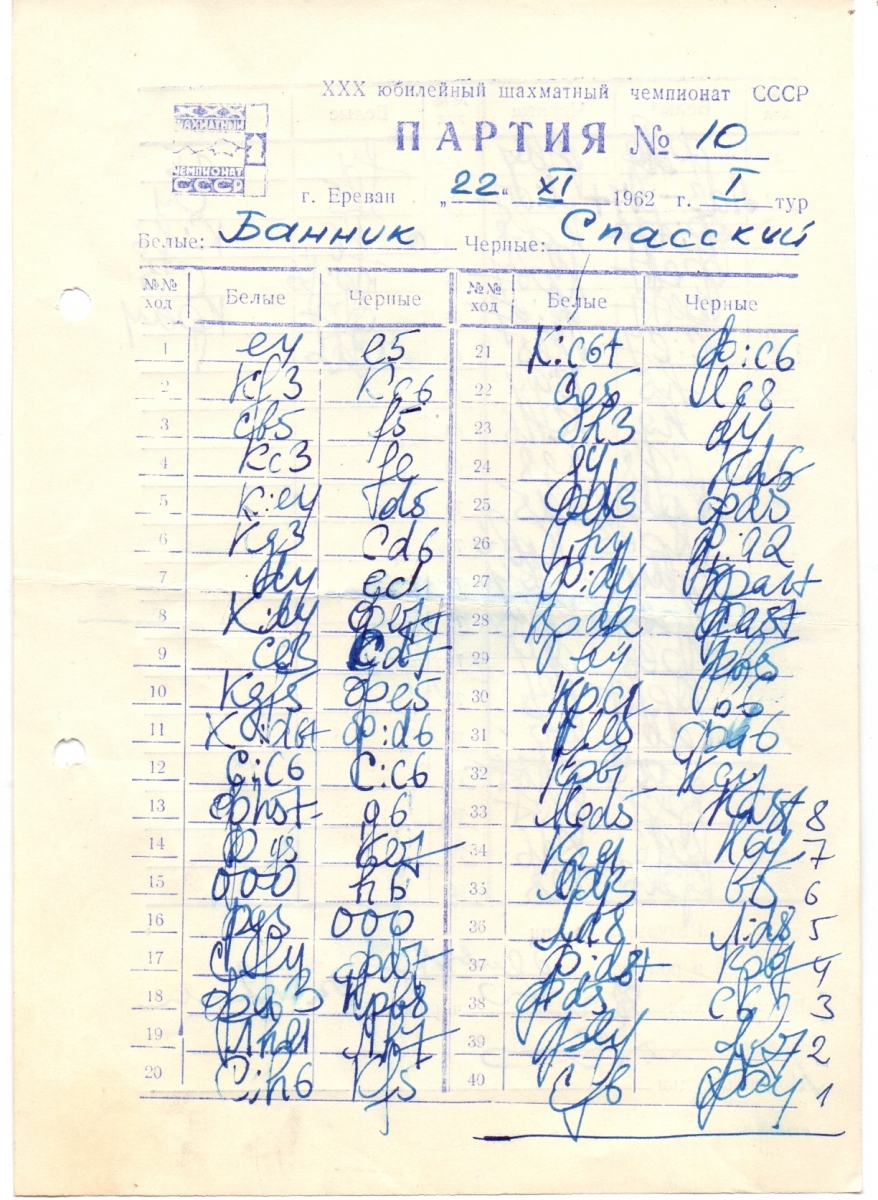 XXX юбилейный шахматный чемпионат СССР
ШАХМАТНЫЙ
ЧЕМПИОНАТ
СССР
ПАРТИЯ № 10
г. Ереван „22“ XI 1962 г. I тур
Белые: Банник Черные: Спасский
№№ ход Белые Черные №№ ход Белые Черные
1 e4 e5 21 К:c6+ Ф:c6
2 Кf3 Кc6 22 Сg5 Лc8
3 Сb5 f5 23 h3
4 Кc3 fe 24 g4 Кd6
5 К:e4 d5 25 Фd5
6 Кg3 Сd6 26 Ф:a2
7 d4 ed 27 Ф:d4 Фa1+
8 К:d4 28 Крd2 Фa5+
9 Сe3 Сd7 29 b4
10 Кgf5 Фe5 30 Крc1
11 К:d6+ Ф:d6 31 Фa6
12 С:c6 С:c6 32 Крb1 Кc4
13 Фh5+ g6 33
14 Фg5 Кe7 34 7
15 000 h6 35 b5 6
16 Фg3 000 36 Л:d8 5
17 Сf4 Фd7 37 Ф:d8+ Крb7 4
18 Крb8 38 Фd5 3
19 Лh7 39 2
20 С:h6 Кf5 40 Сf6 1